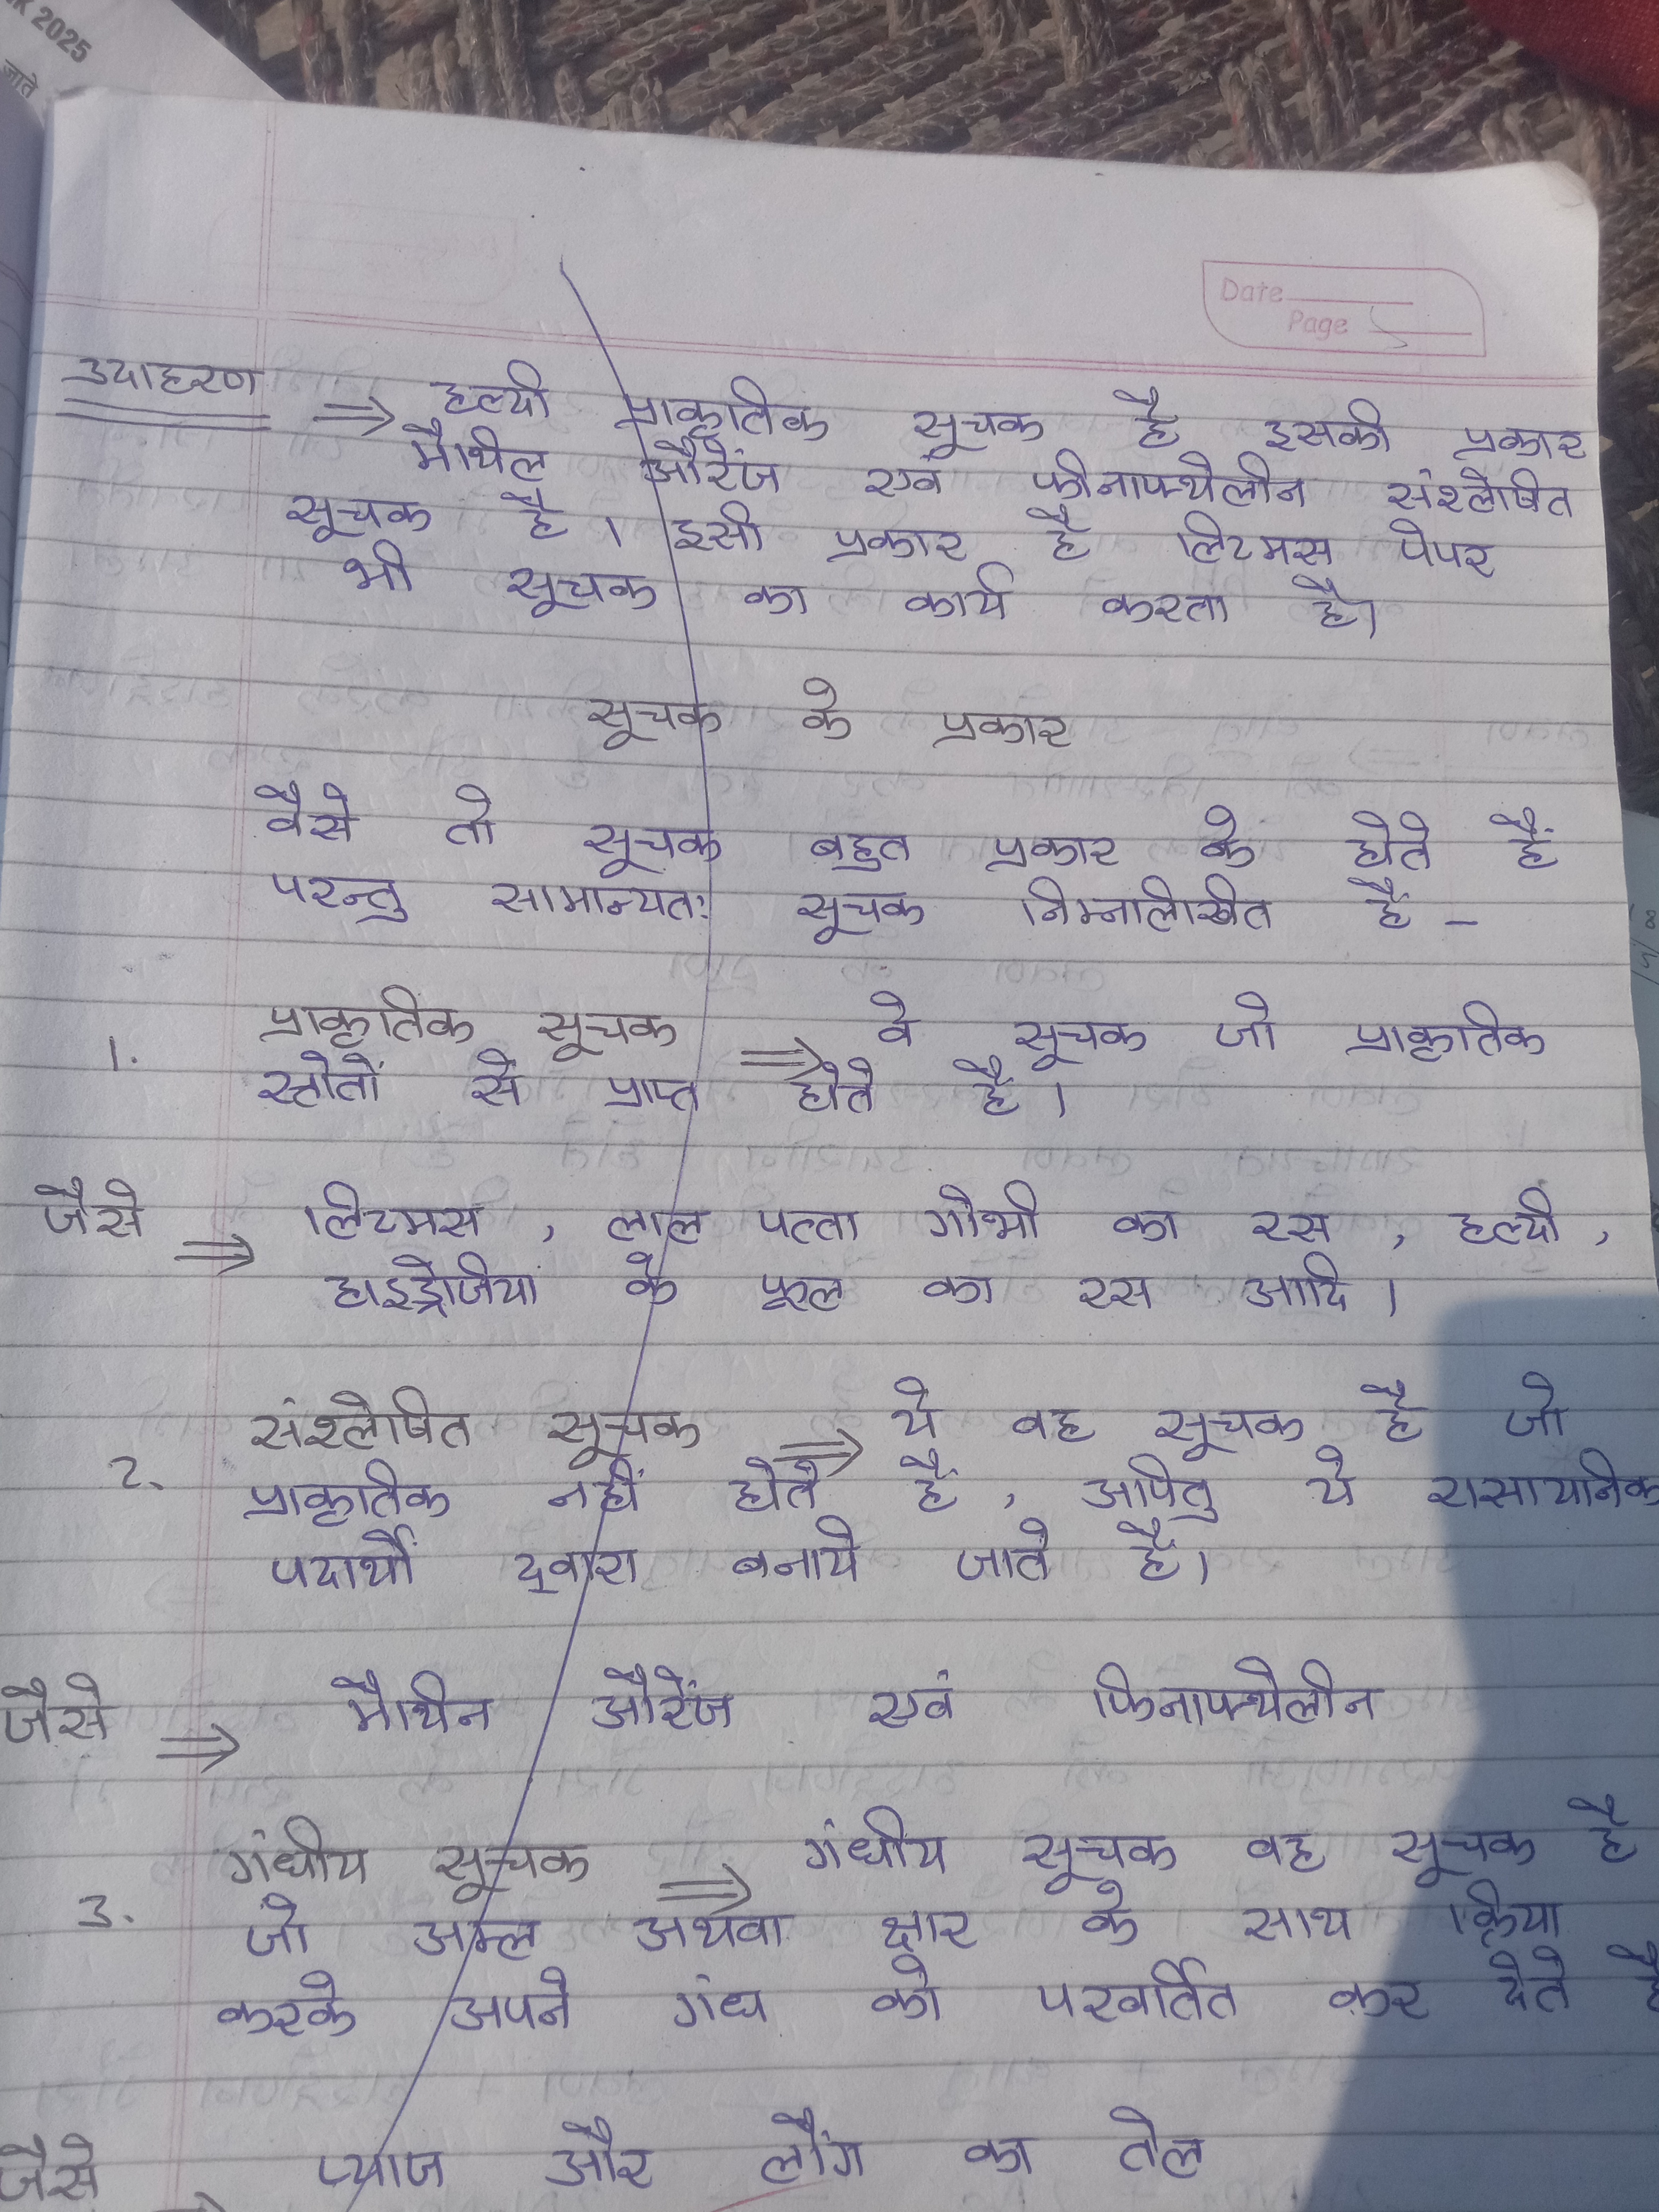 K 2025
जाते
Date
Page
उदाहरण ⇒ हल्दी प्राकृतिक सूचक है इसकी प्रकार
मैथिल औरेंज एवं फीनाफ्थेलीन संश्लेषित
सूचक है। इसी प्रकार है लिटमस पेपर
भी सूचक का कार्य करता है।
सूचक के प्रकार
वैसे तो सूचक बहुत प्रकार के होते हैं
परन्तु सामान्यतः सूचक निम्नलिखित हैं -
1. प्राकृतिक सूचक ⇒ वे सूचक जो प्राकृतिक
स्त्रोतों से प्राप्त होते हैं।
जैसे ⇒ लिटमस , लाल पत्ता गोभी का रस , हल्दी ,
हाइड्रेंजिया के फूल का रस आदि।
2. संश्लेषित सूचक ⇒ ये वह सूचक है जो
प्राकृतिक नहीं होते हैं , अपितु ये रासायनिक
पदार्थों द्वारा बनाये जाते हैं।
जैसे ⇒ मैथिन औरेंज एवं फिनाफ्थेलीन
3. गंधीय सूचक ⇒ गंधीय सूचक वह सूचक है
जो अम्ल अथवा क्षार के साथ क्रिया
करके अपने गंध को परवर्तित कर देते है
जैसे ⇒ प्याज और लौंग का तेल